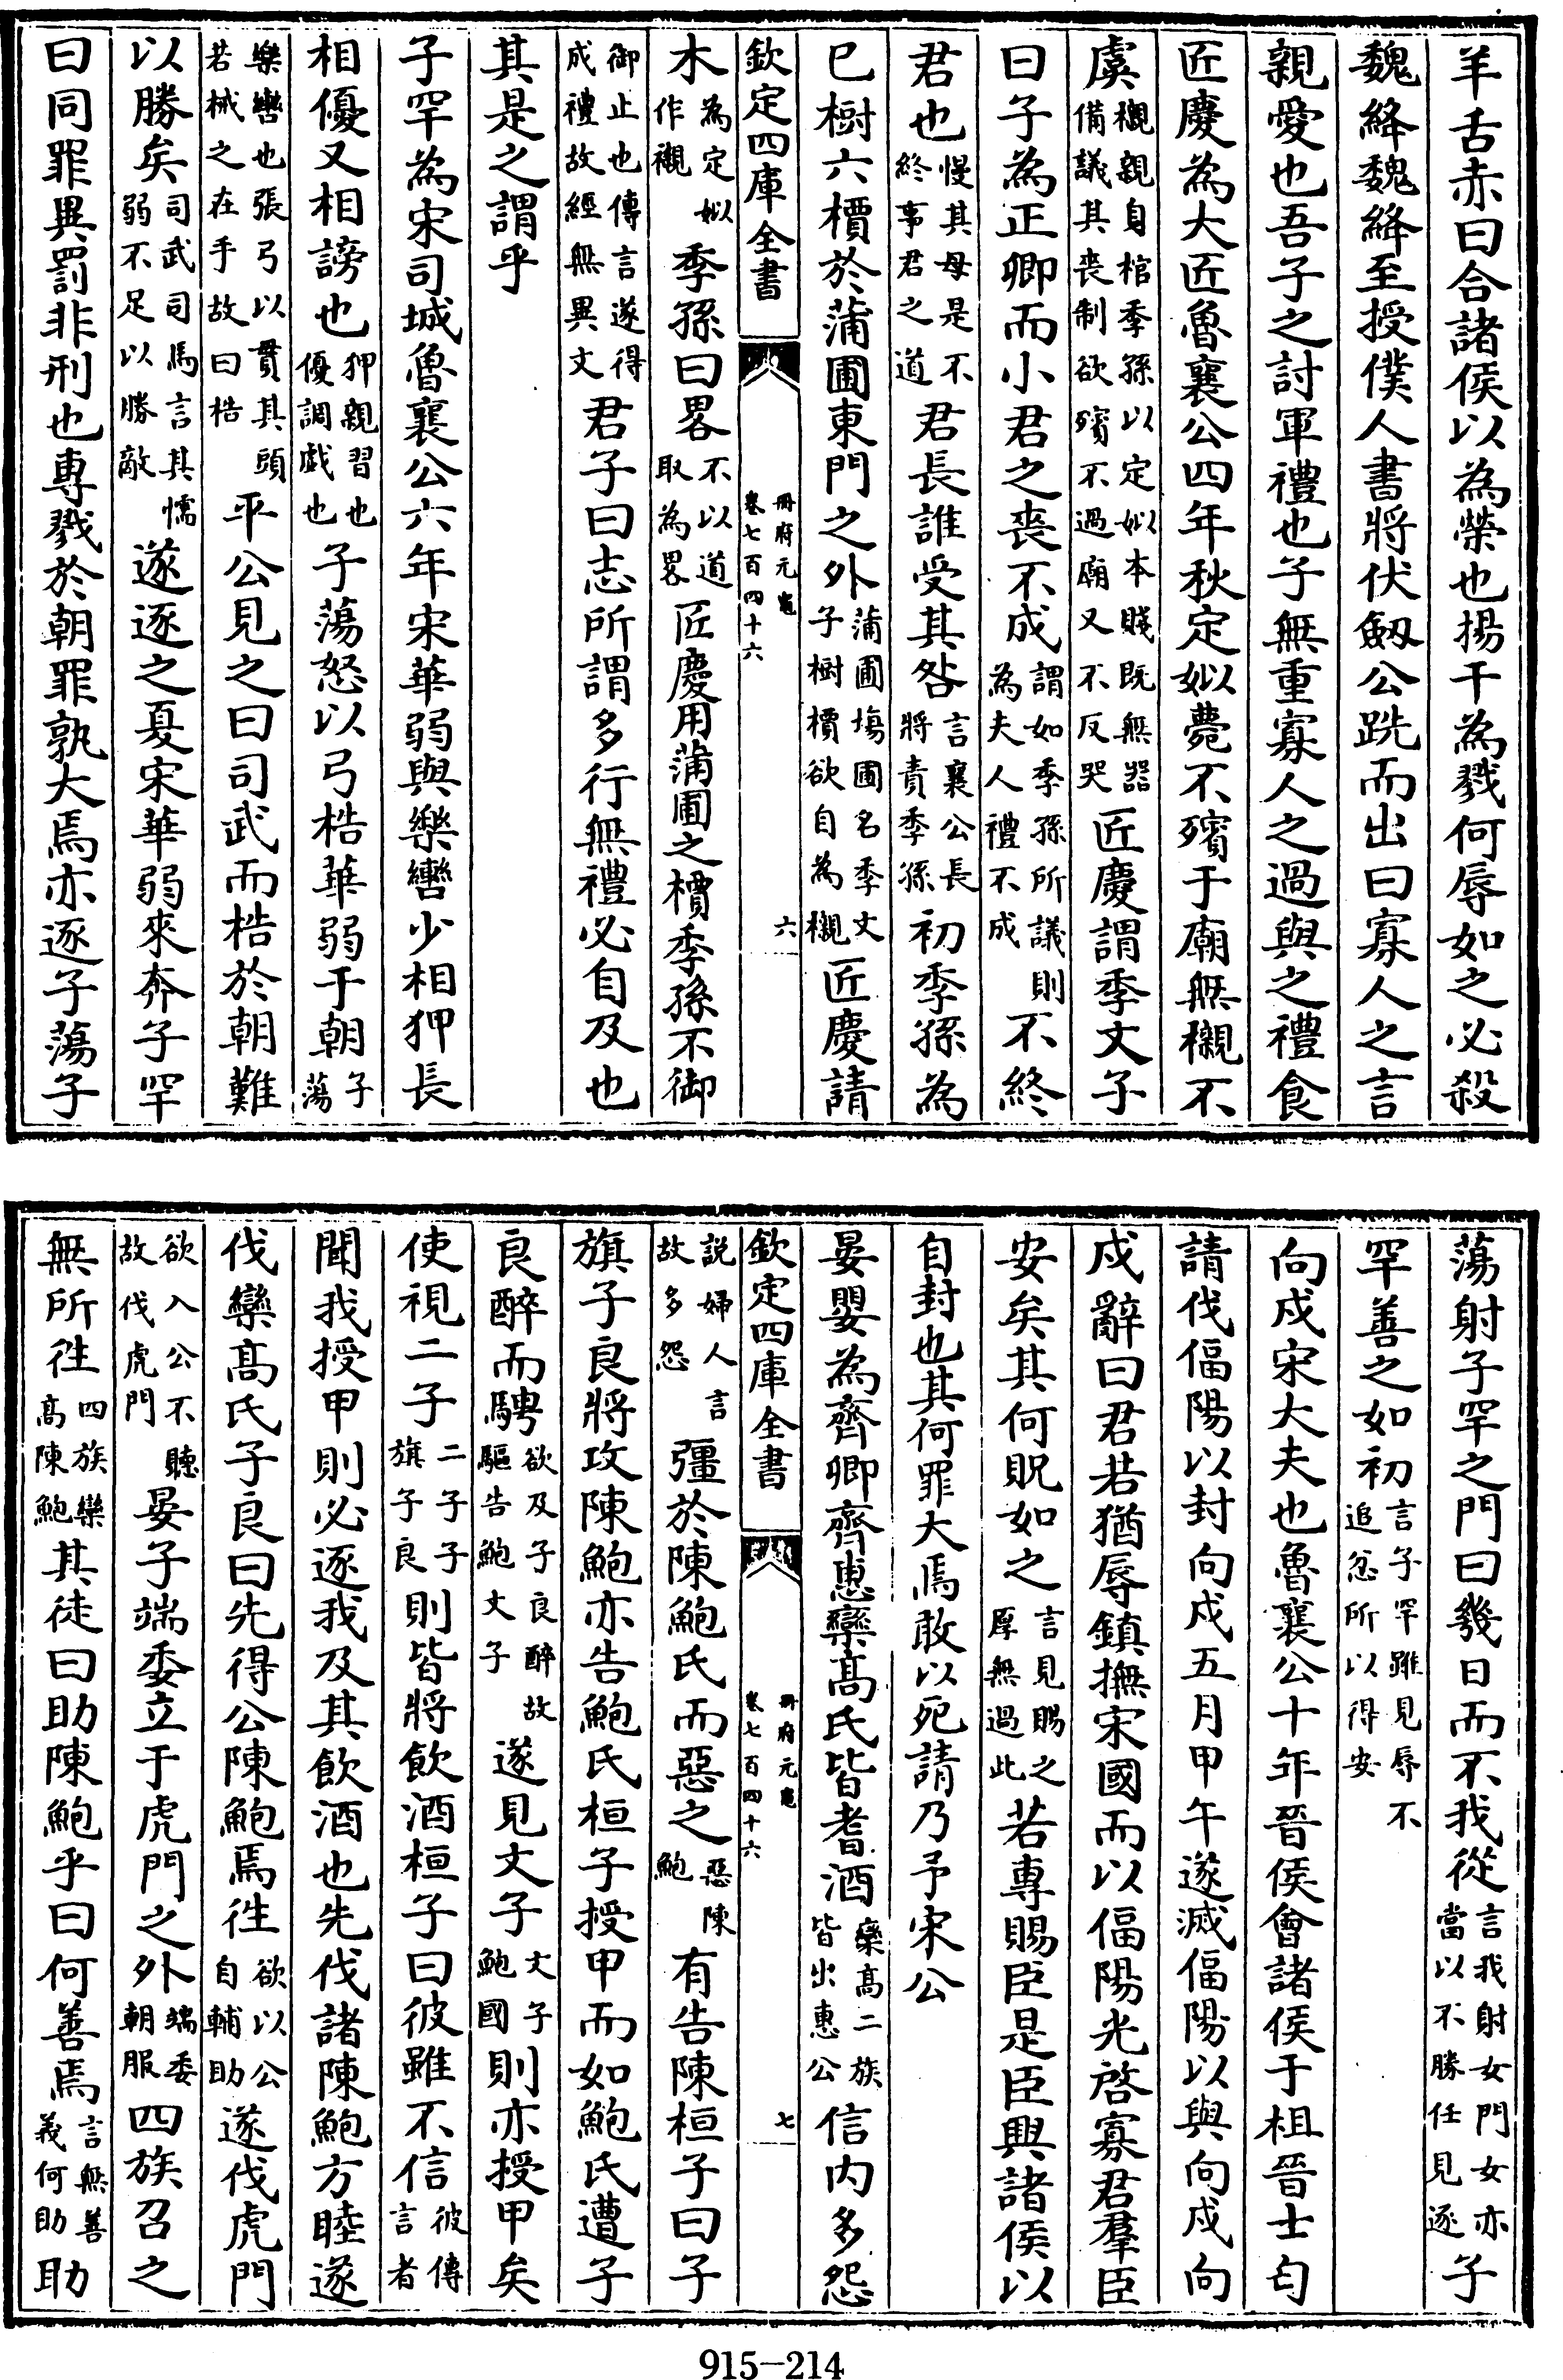 羊舌赤曰合諸侯以為榮也揚干為戮何辱如之必殺
魏絳魏絳至授僕人書將伏劒公跣而出曰寡人之言
親愛也吾子之討軍禮也子無重寡人之過與之禮食
匠慶為大匠魯襄公四年秋定姒薨不殯于廟無櫬不
虞櫬親身棺季孫以定姒本賤既無器備議其喪制欲殯不過廟又不反哭匠慶謂季文子
曰子為正卿而小君之喪不成謂如季孫所議則為夫人禮不成不終
君也慢其母是不終事君之道君長誰受其咎言襄公長將責季孫初季孫為
巳樹六檟於蒲圃東門之外蒲圃塲圃名季文子樹檟欲自為櫬匠慶請
欽定四庫全書
冊府元龜
卷七百四十六
六
木為定姒作櫬季孫曰畧不以道取為畧匠慶用蒲圃之檟季孫不御
御止也傳言遂得成禮故經無異文君子曰志所謂多行無禮必自及也
其是之謂乎
子罕為宋司城魯襄公六年宋華弱與樂轡少相狎長
相優又相謗也狎親習也優調戲也子蕩怒以弓梏華弱于朝子蕩
樂轡也張弓以貫其頭若械之在手故曰梏平公見之曰司武而梏於朝難
以勝矣司武司馬言其懦弱不足以勝敵遂逐之夏宋華弱來奔子罕
曰同罪異罰非刑也專戮於朝罪孰大焉亦逐子蕩子
蕩射子罕之門曰幾日而不我從言我射女門女亦當以不勝任見逐子
罕善之如初言子罕雖見辱不追忿所以得安
向戍宋大夫也魯襄公十年晉侯會諸侯于柤晉士匄
請伐偪陽以封向戍五月甲午遂滅偪陽以與向戍向
戍辭曰君若猶辱鎮撫宋國而以偪陽光啓寡君羣臣
安矣其何貺如之言見賜之厚無過此若專賜臣是臣興諸侯以
自封也其何罪大焉敢以死請乃予宋公
晏嬰為齊卿齊惠欒髙氏皆耆酒欒髙二族皆出惠公信内多怨
欽定四庫全書
冊府元龜
卷七百四十六
七
説婦人言故多怨彊於陳鮑氏而惡之惡陳鮑有告陳桓子曰子
旗子良將攻陳鮑亦告鮑氏桓子授甲而如鮑氏遭子
良醉而騁欲及子良醉故驅告鮑文子遂見文子文子鮑國則亦授甲矣
使視二子二子子旗子良則皆將飲酒桓子曰彼雖不信彼傳言者
聞我授甲則必逐我及其飲酒也先伐諸陳鮑方睦遂
伐欒髙氏子良曰先得公陳鮑焉往欲以公自輔助遂伐虎門
欲入公不聽故伐虎門晏子端委立于虎門之外端委朝服四族召之
無所往四族欒髙陳鮑其徒曰助陳鮑乎曰何善焉言無善義何助助
915-214